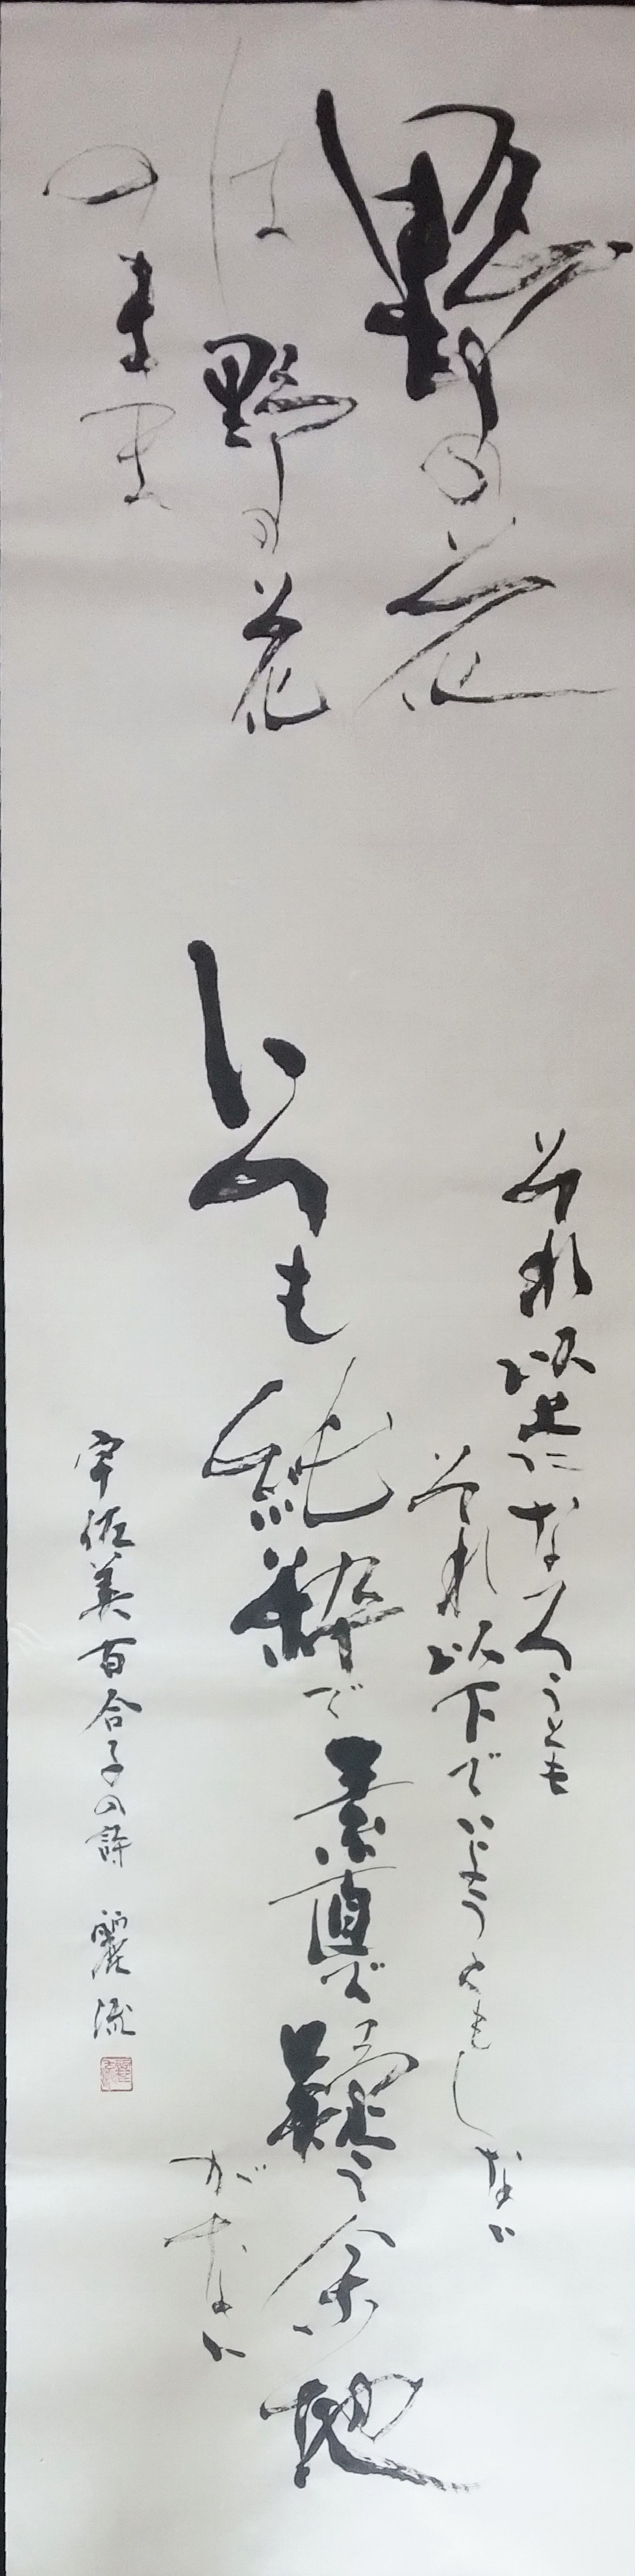 野の花
は野の花
のまま
それ以上になろうとも
それ以下でいようともしない
いつも純粋で素直で疑う余地
がない
宇佐美百合子の詩 麗流